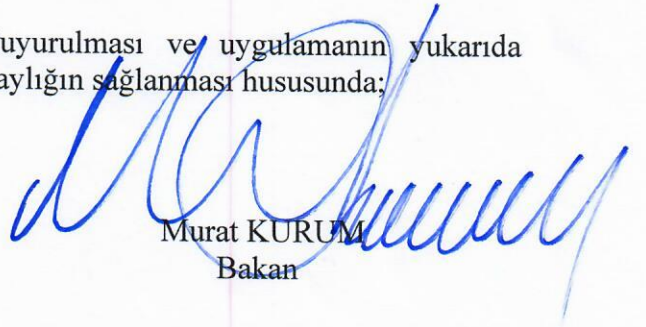 uyurulması ve uygulamanın yukarıda
aylığın sağlanması hususunda;
Murat KURUM
Bakan